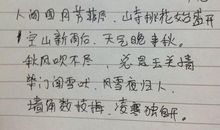 人间四月芳菲尽，山寺桃花始盛开
空山新雨后，天气晚来秋。
秋风吹不尽，总是玉关情
柴门闻雪吠，风雪夜归人
墙角数枝梅，凌寒独自开。